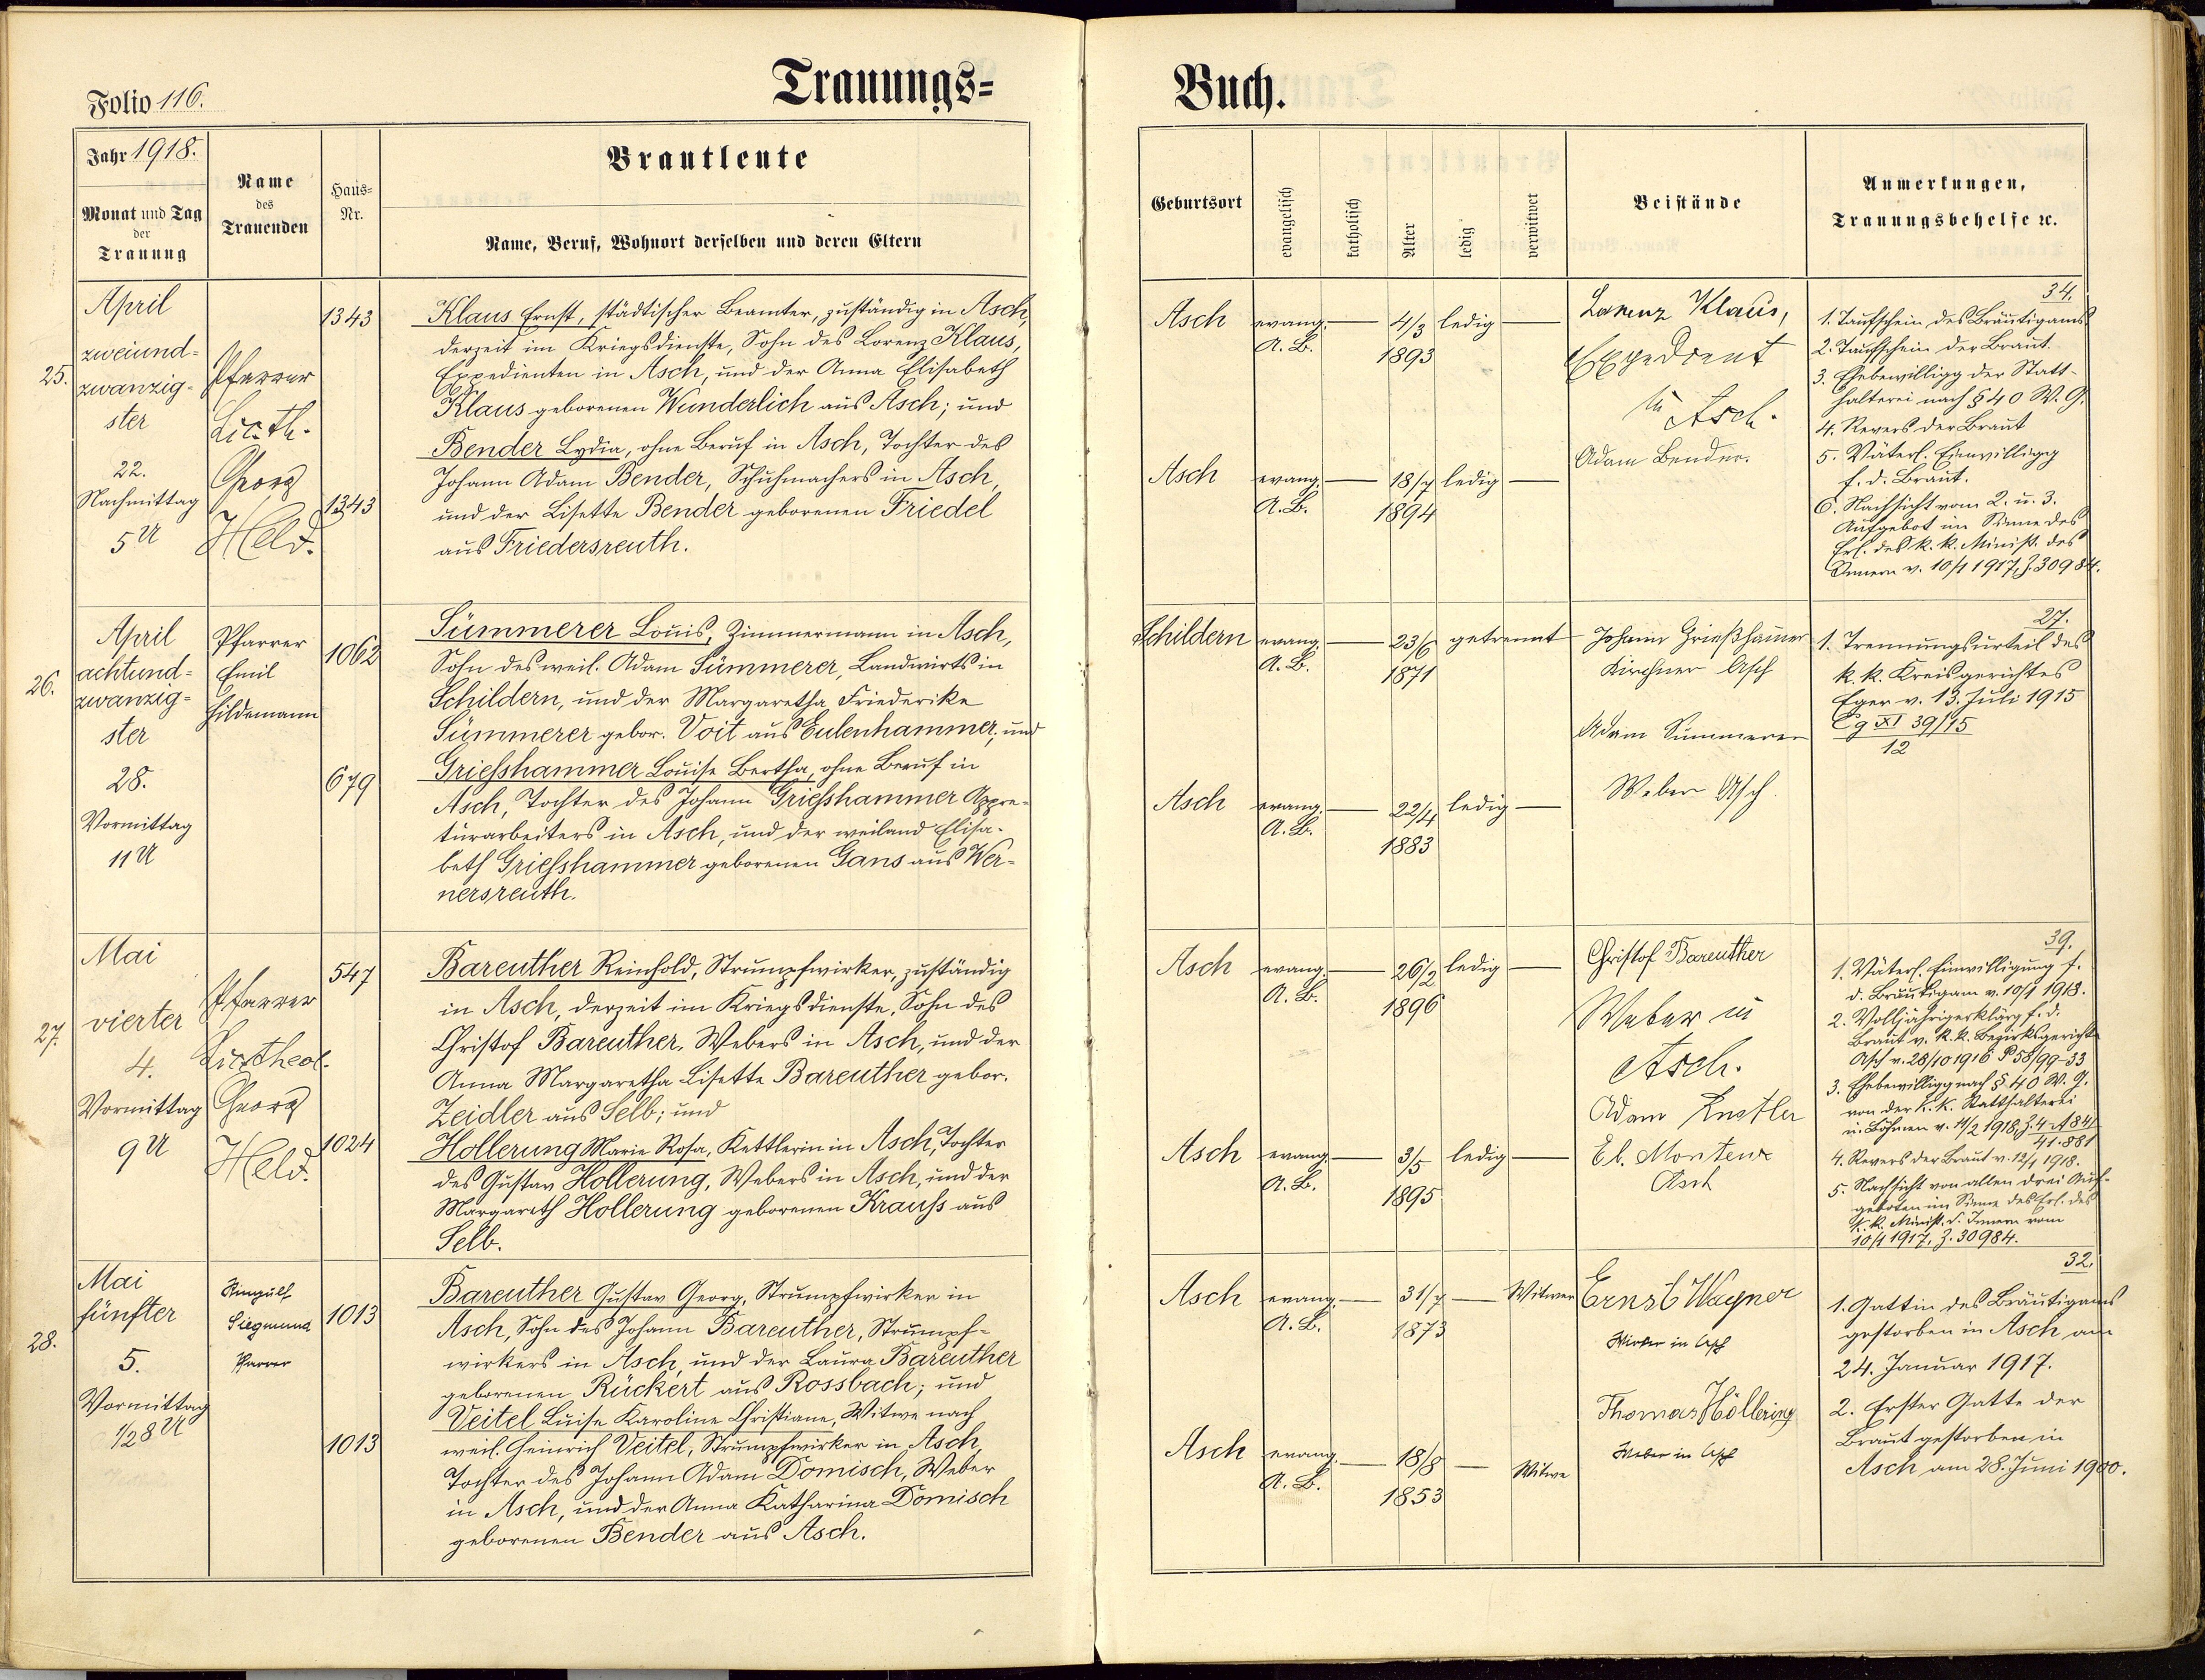 Folio 116.
Trauungs=
Buch.
Jahr 1918.
Monat und Tag
der
Trauung
Name
des
Trauenden
Haus-
Nr.
Brautleute
Name, Beruf, Wohnort derselben und deren Eltern
Geburtsort
evangelisch
katholisch
Alter
ledig
verwitwet
Beistände
Anmerkungen,
Trauungsbehelfe ꝛc.
25.
April
zweiund=
zwanzig=
ster
22.
Nachmittag
5 U
Pfarrer
Lic. th.
Georg
Held.
1343
Klaus Ernst, städtischer Beamter, zuständig in Asch,
derzeit im Kriegsdienste, Sohn des Lorenz Klaus,
Expedienten in Asch, und der Anna Elisabeth
Klaus geborenen Wunderlich aus Asch; und
1343
Bender Lydia, ohne Beruf in Asch, Tochter des
Johann Adam Bender, Schuhmachers in Asch,
und der Lisette Bender geborenen Friedel
aus Friedersreuth.
Asch evang. — 4/3 ledig —
A. B. 1893
Asch evang. — 18/7 ledig —
A. B. 1894
Lorenz Klaus,
Expedient
in Asch.
Adam Bender.
34.
1. Taufschein des Bräutigams
2. Taufschein der Braut.
3. Ehebewilligg der Statt-
halterei nach § 40 W. G.
4. Revers der Braut
5. Väterl. Einwilligg
f. d. Braut.
6. Nachsicht vom 2. u. 3.
Aufgebot im Sinne des
Erl. des k. k. Minist. des
Innern v. 10/1 1917, Z. 30984.
26.
April
achtund=
zwanzig=
ster
28.
Vormittag
11 U
Pfarrer
Emil
Hildemann
1062
Sümmerer Louis, Zimmermann in Asch,
Sohn des weil. Adam Sümmerer, Landwirts in
Schildern, und der Margaretha Friederike
Sümmerer gebor. Voit aus Eulenhammer; und
679
Griesshammer Louise Bertha, ohne Beruf in
Asch, Tochter des Johann Griesshammer Appre-
turarbeiters in Asch, und der weiland Elisa-
beth Griesshammer geborenen Gans aus Wer-
nersreuth.
Schildern evang. — 23/6 getrennt
A. B. 1871
Asch evang. — 22/4 ledig —
A. B. 1883
Johann Grießhamer
Kirchner Asch
Adam Sümmerer
Weber Asch
27.
1. Trennungsurteil des
k. k. Kreisgerichtes
Eger v. 13. Juli 1915
Cg XI 39/15
12
27.
Mai
vierter
4.
Vormittag
9 U
Pfarrer
Lic. theol.
Georg
Held.
547
Bareuther Reinhold, Strumpfwirker, zuständig
in Asch, derzeit im Kriegsdienste, Sohn des
Christof Bareuther, Webers in Asch, und der
Anna Margaretha Lisette Bareuther gebor.
Zeidler aus Selb; und
1024
Hollerung Marie Rosa, Kettlerin in Asch, Tochter
des Gustav Hollerung, Webers in Asch, und der
Margareth Hollerung geborenen Krauss aus
Selb.
Asch evang. — 26/2 ledig —
A. B. 1896
Asch evang. — 3/5 ledig —
A. B. 1895
Christof Bareuther
Weber in
Asch.
Adam Künstler
El. Monteur
Asch
39.
1. Väterl. Einwilligung f.
d. Bräutigam v. 10/1 1918.
2. Volljährigerklärg f. d.
Braut v. k. k. Bezirksgericht
Asch v. 28/10 1916 P 58/99-33
3. Ehebewilligg nach § 40 W. G.
von der k. k. Statthalterei
in Böhmen v. 14/2 1918, Z. 4 A 841
41.881
4. Revers der Braut v. 12/1 1918.
5. Nachsicht von allen drei Auf-
geboten im Sinne des Erl. des
k. k. Minist. d. Innern vom
10/1 1917, Z. 30984.
28.
Mai
fünfter
5.
Vormittag
1/2 8 U
Ringulf
Siegmund
Pfarrer
1013
Bareuther Gustav Georg, Strumpfwirker in
Asch, Sohn des Johann Bareuther, Strumpf-
wirkers in Asch, und der Laura Bareuther
geborenen Rückert aus Rossbach; und
1013
Veitel Luise Karoline Christiane, Witwe nach
weil. Heinrich Veitel, Strumpfwirker in Asch,
Tochter des Johann Adam Domisch, Weber
in Asch, und der Anna Katharina Domisch
geborenen Bender aus Asch.
Asch evang. — 31/7 — Witwer
A. B. 1873
Asch evang. — 18/8 — Witwe
A. B. 1853
Ernst Wagner
Wirker in Asch
Thomas Höllering
Weber in Asch
32.
1. Gattin des Bräutigams
gestorben in Asch am
24. Januar 1917.
2. Erster Gatte der
Braut gestorben in
Asch am 28. Juni 1900.